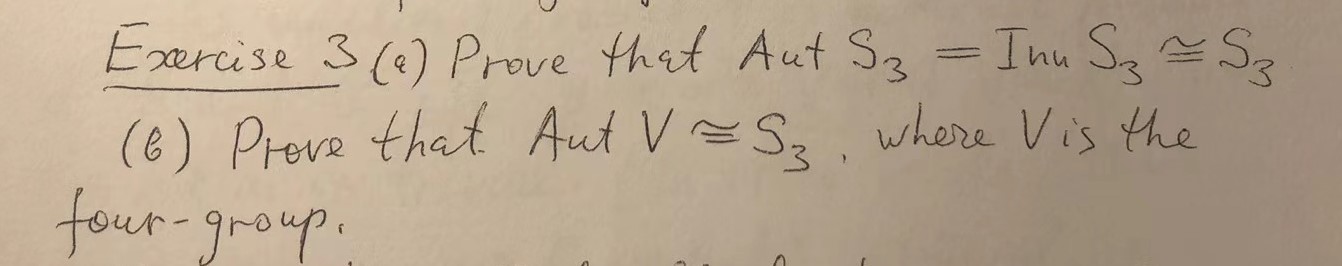 Exercise 3 (a) Prove that Aut S₃ = Inn S₃ ≅ S₃
(b) Prove that Aut V ≅ S₃, where V is the
four-group.